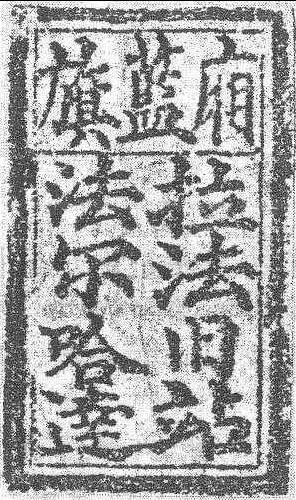 廂藍旗
拉法旧站
法尔哈達